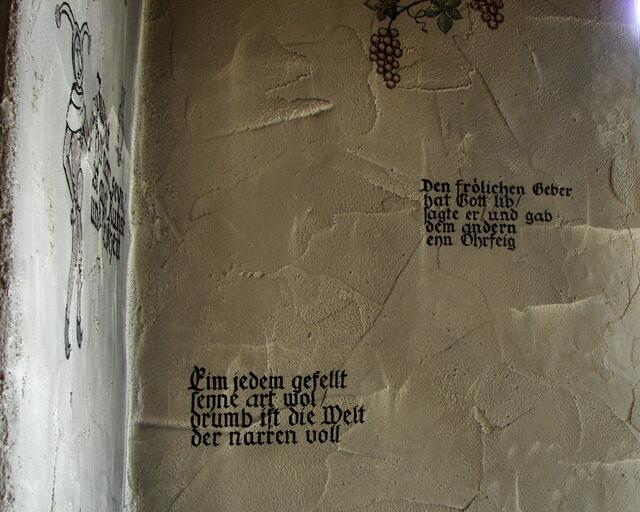 Den frölichen Geber
hat Gott lib/
sagte er/und gab
dem andern
eyn Ohrfeig
Eim jedem gefellt
seyne art wol/
drumb ist die Welt
der narren voll